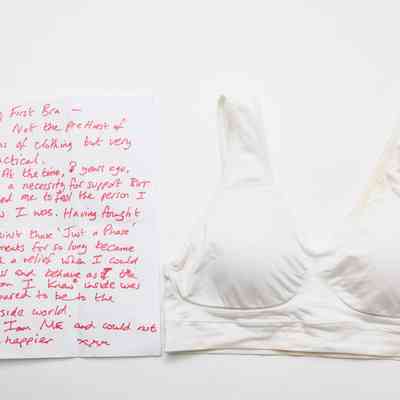 First Bra —
Not the prettiest of
of clothing but very
.
At the time, 8 years ago,
a necessity for support BUT
me to feel the person I
I was. Having fought
those 'Just a Phase'
for so long became
a relief when I could
and behave as if the
I knew inside was
to be to the
world.
I am ME and could not
happier xxx